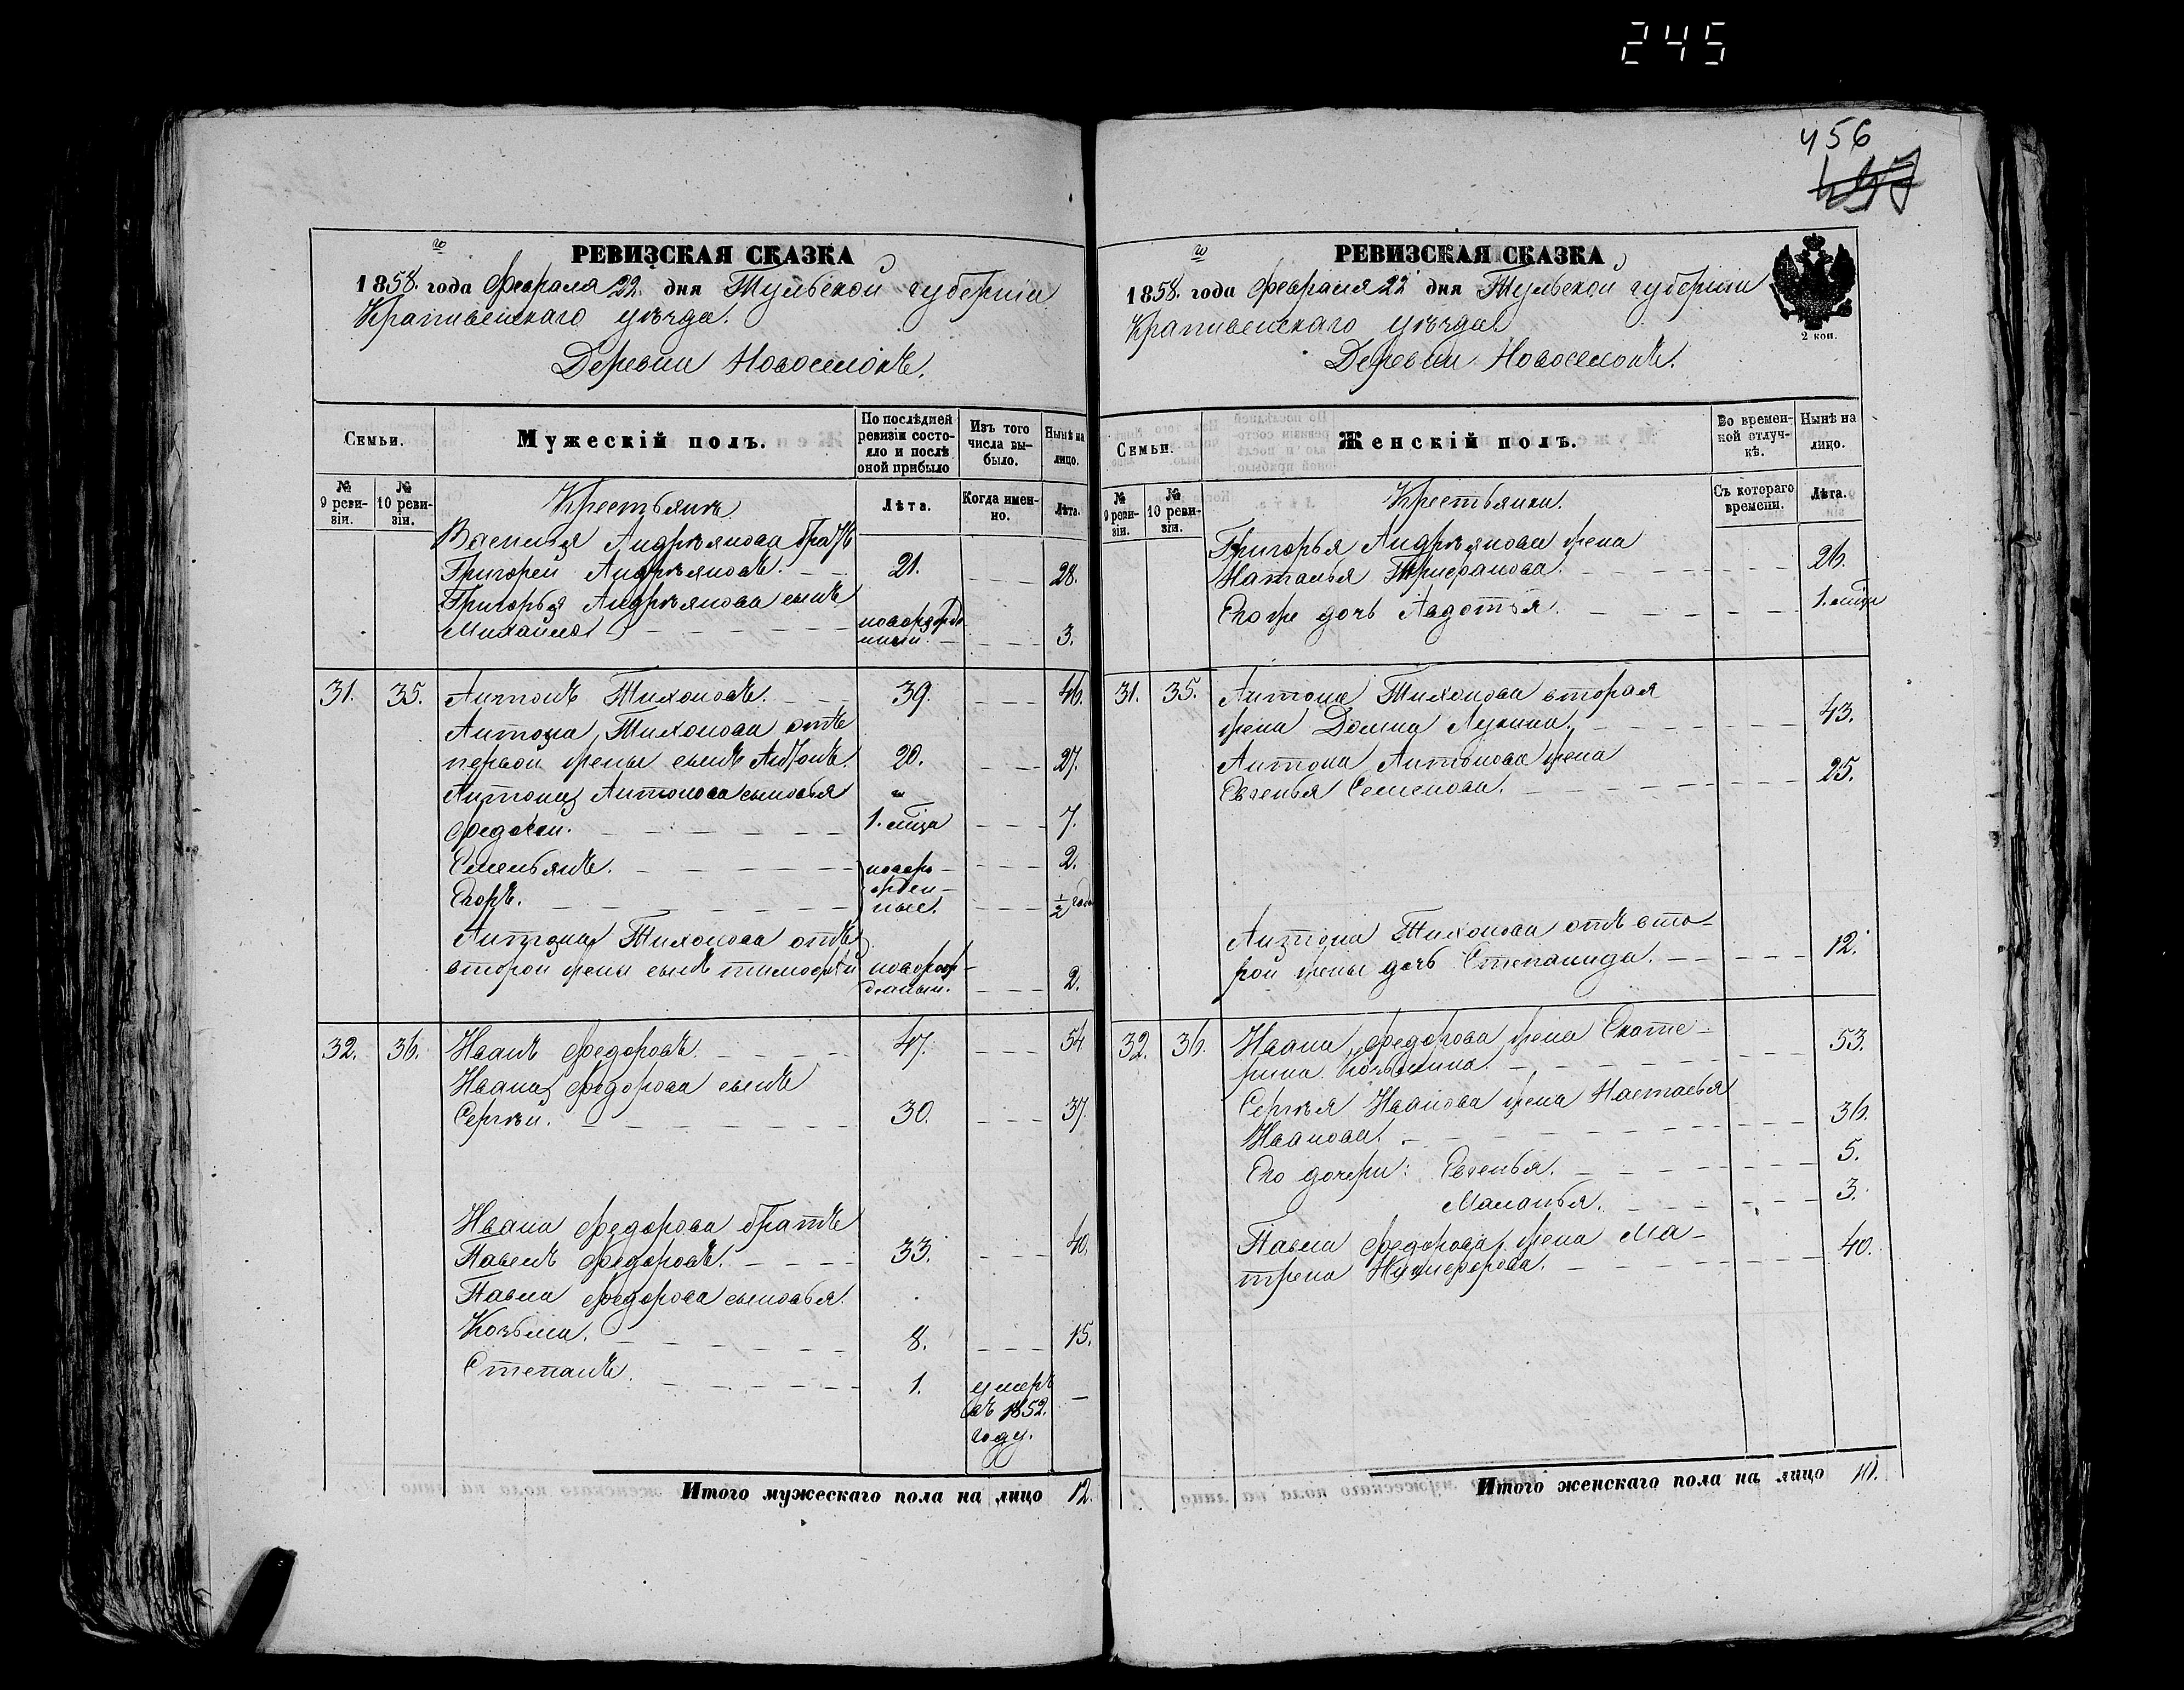 245
456
РЕВИЗСКАЯ СКАЗКА
1858 го года Февраля 22 дня Тульской губерніи
Крапивенскаго уѣзда.
Деревни Новоселокъ.
Семьи.
Мужескій полъ.
По послѣдней ревизіи состояло и послѣ оной прибыло
Изъ того числа выбыло.
Нынѣ на лицо.
№ 9 ревизіи.
№ 10 ревизіи.
Крестьянъ
Лѣта.
Когда именно.
Лѣта.
Василья Андрѣянова братъ
Григорей Андрѣяновъ. 21. 28.
Григорья Андрѣянова сынъ
Михайла новорожденный. 3.
31. 35. Антонъ Тихоновъ. 39. 46.
Антона Тихонова отъ
первой жены сынъ Антонъ. 20. 27.
Антона Антонова сыновья
Федосей. 1. мѣсяца 7.
Емельянъ. 2.
Егоръ. новорожденные. ½ года
Антона Тихонова отъ
второй жены сынъ Тимофѣй новорожденный. 2.
32. 36. Иванъ Федоровъ. 47. 54
Ивана Федорова сынъ
Сергѣй. 30. 37
Ивана Федорова братъ
Павелъ Федоровъ. 33. 40.
Павла Федорова сыновья.
Козьма. 8. 15.
Степанъ. 1. умеръ
въ 1852.
году.
Итого мужескаго пола на лицо 12.
РЕВИЗСКАЯ СКАЗКА
1858 го года Февраля 22 дня Тульской губерніи
Крапивенскаго уѣзда
Деревни Новоселокъ.
2 коп.
Семьи.
Женскій полъ.
Во временной отлучкѣ.
Нынѣ на лицо.
№ 9 ревизіи.
№ 10 ревизіи.
Крестьянки.
Съ котораго времени.
Лѣта.
Григорья Андрѣянова жена
Наталья Трифанова. 26.
Его же дочь Авдотья. 1.
31. 35. Антона Тихонова вторая
жена Домна Лукина. 43.
Антона Антонова жена
Евгенья Семенова. 25.
Антона Тихонова отъ вто-
рой жены дочь Степанида. 12.
32. 36. Ивана Федорова жена Екате-
рина Козьмина. 53.
Сергѣя Иванова жена Настасья
Иванова. 36.
Его дочери: Евгенья. 5.
Маланья. 3.
Павла Федорова жена Ма-
трена Никифорова. 40.
Итого женскаго пола на лицо 10.